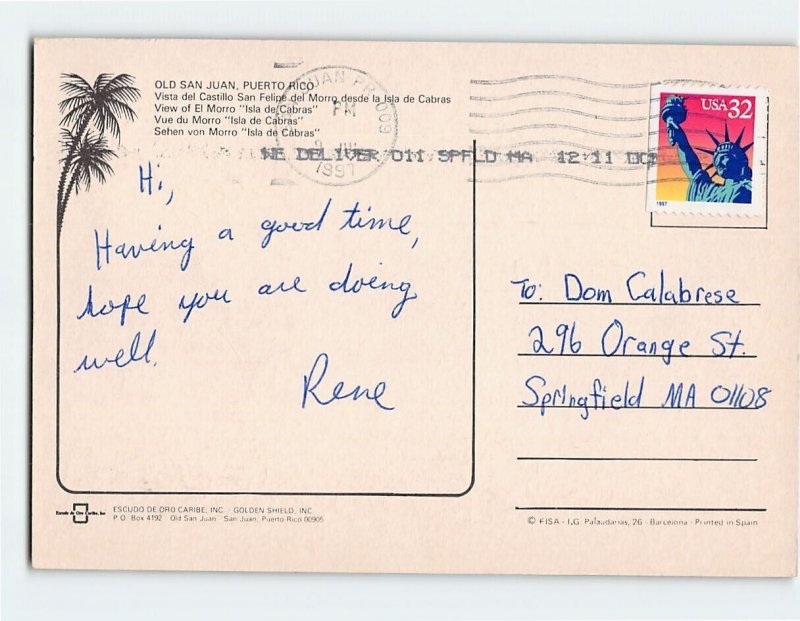 OLD SAN JUAN, PUERTO RICO
Vista del Castillo San Felipe del Morro desde la Isla de Cabras
View of El Morro "Isla de Cabras"
Vue du Morro "Isla de Cabras"
Sehen von Morro "Isla de Cabras"
JUAN PR 009
PM
1997
NE DELIVER 011 SPFLD MA 12:11
USA 32
1997
Hi,
Having a good time,
hope you are doing
well.
Rene
To: Dom Calabrese
296 Orange St.
Springfield MA 01108
Escudo de Oro Caribe, Inc
ESCUDO DE ORO CARIBE, INC. / GOLDEN SHIELD, INC.
P.O. Box 4192 Old San Juan San Juan, Puerto Rico 00905
© FISA - I.G. Palaudarias, 26 - Barcelona - Printed in Spain